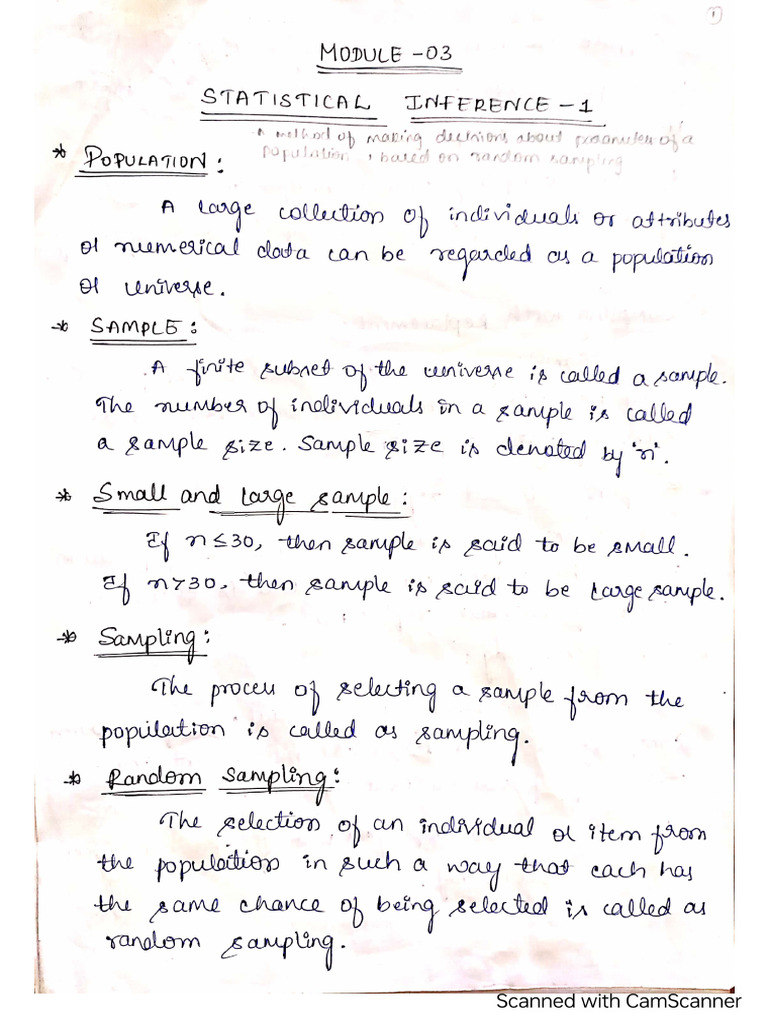 1
MODULE -03
STATISTICAL INFERENCE -1
A method of making decisions about parameter of a
population, based on random sampling
* POPULATION:
A large collection of individuals or attributes
or numerical data can be regarded as a population
or universe.
* SAMPLE:
A finite subset of the universe is called a sample.
The number of individuals in a sample is called
a sample size. Sample size is denoted by 'n'.
* Small and large sample:
If n≤30, then sample is said to be small.
If n>30, then sample is said to be large sample.
* Sampling:
The process of selecting a sample from the
population is called as sampling.
* Random Sampling:
The selection of an individual or item from
the population in such a way that each has
the same chance of being selected is called as
random sampling.
Scanned with CamScanner